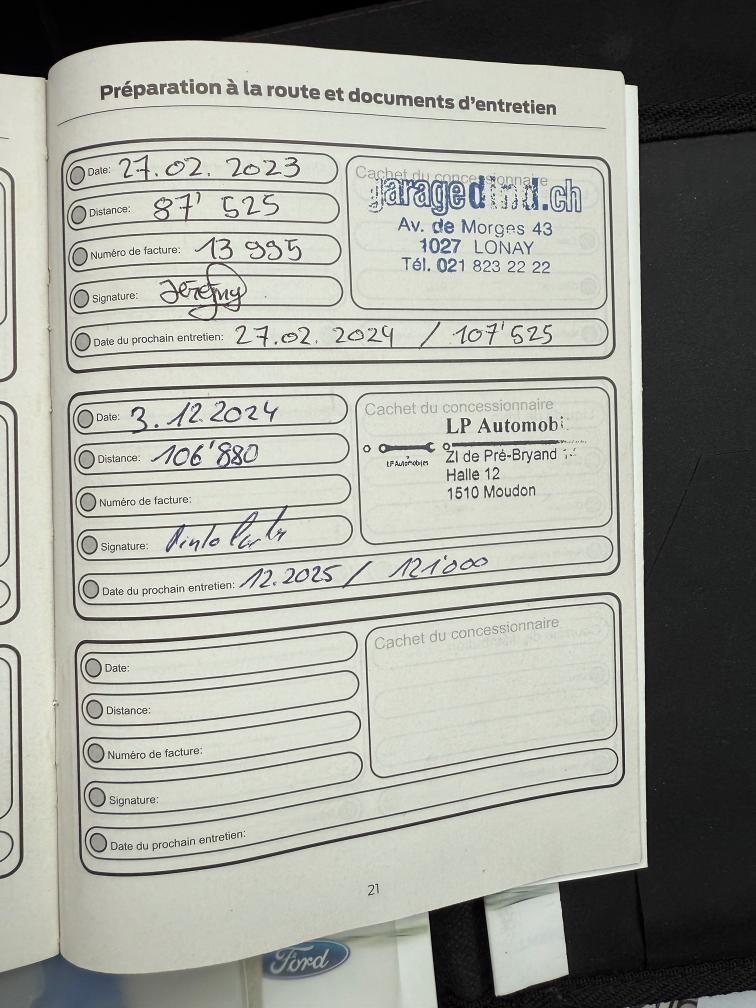 Préparation à la route et documents d'entretien
Date: 27.02.2023
Distance: 87'525
Numéro de facture: 13995
Signature: Jeremy
Date du prochain entretien: 27.02.2024 / 107'525
Cachet du concessionnaire
garagedind.ch
Av. de Morges 43
1027 LONAY
Tél. 021 823 22 22
Date: 3.12.2024
Distance: 106'880
Numéro de facture:
Signature:
Date du prochain entretien: 12.2025 / 121'000
Cachet du concessionnaire
LP Automobi
LP Automobiles
ZI de Pré-Bryand
Halle 12
1510 Moudon
Date:
Distance:
Numéro de facture:
Signature:
Date du prochain entretien:
Cachet du concessionnaire
21
Ford